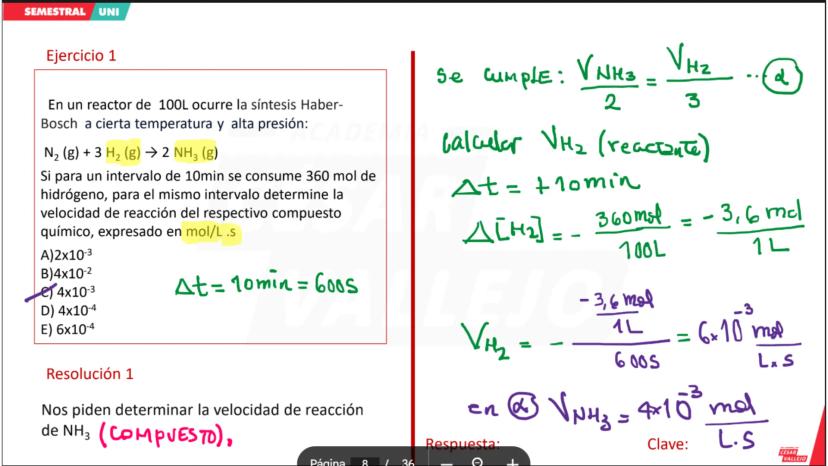 SEMESTRAL UNI
Ejercicio 1
En un reactor de 100L ocurre la síntesis Haber-
Bosch a cierta temperatura y alta presión:
N₂ (g) + 3 H₂ (g) → 2 NH₃ (g)
Si para un intervalo de 10min se consume 360 mol de
hidrógeno, para el mismo intervalo determine la
velocidad de reacción del respectivo compuesto
químico, expresado en mol/L .s
A)2x10⁻³
B)4x10⁻²
C) 4x10⁻³
D) 4x10⁻⁴
E) 6x10⁻⁴
Δt = 10min = 600s
Resolución 1
Nos piden determinar la velocidad de reacción
de NH₃ (COMPUESTO).
Se cumple: V NH₃ / 2 = V H₂ / 3 ... α
Calcular V H₂ (reactante)
Δt = +10min
Δ[H₂] = - 360mol / 100L = -3,6 mol / 1L
V H₂ = - (-3,6 mol / 1L) / 600s = 6x10⁻³ mol / L x s
en α V NH₃ = 4x10⁻³ mol / L.s
Respuesta: Clave:
CÉSAR
VALLEJO
Página 8 / 36 — +